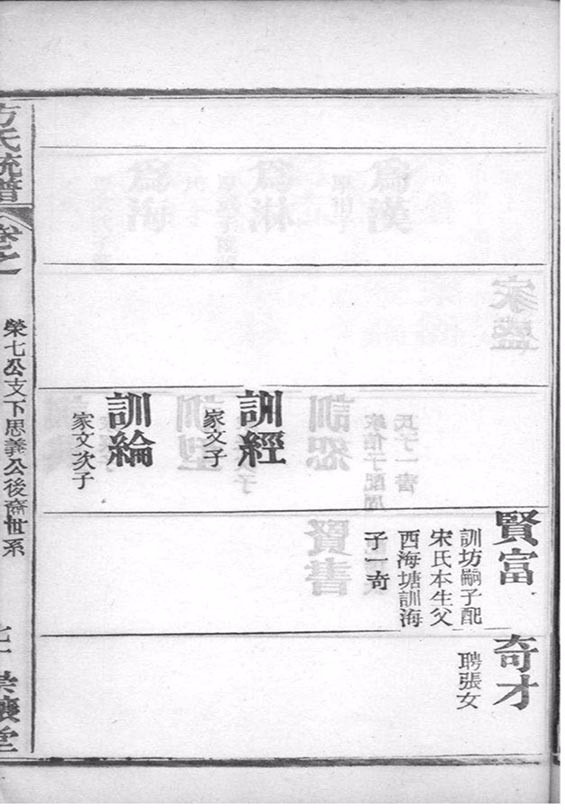 訓經
家文子
訓綸
家文次子
賢富
訓坊嗣子配
宋氏本生父
西海塘訓海
子一奇
奇才
聘張女
方氏統譜
卷之
榮七公支下思義公後裔世系
崇讓堂